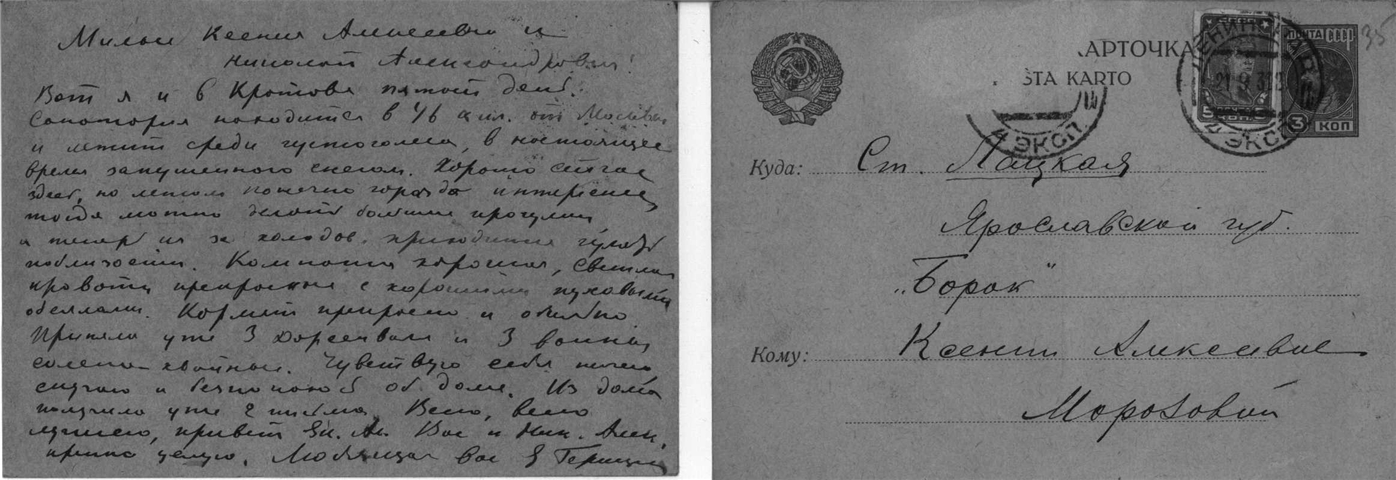 Милые Ксения Алексеевна и
Николай Александрович!
Вот я и в Кратове пятый день.
Санатория находится в 46 клм. от Москвы
и лежит среди густого леса, в настоящее
время запушенного снегом. Хорошо сейчас
здесь, но летом конечно гораздо интересней
тогда можно делать большие прогулки
а теперь из за холодов приходится гулять
поблизости. Комната хорошая, светлая
кровати прекрасные с хорошими пуховыми
одеялами. Кормят прекрасно и обильно
Приняла уже 3 и 3 ванны
солено-хвойные. Чувствую себя ничего
скучаю и безпокоюсь об доме. Из дома
получила уже 2 письма. Всего, всего
лучшего, привет Ек. Ал. Вас и Ник. Алек.
крепко целую. Любящая вас
АРТОЧКА
ŜTA KARTO
ПОЧТА СССР
35
3 КОП
ЛЕНИНГРАД
4 ЭКСП.
4 ЭКСП.
Куда: Ст. Шацкая
Ярославской губ.
„Борок"
Кому: Ксении Алексеевне
Морозовой